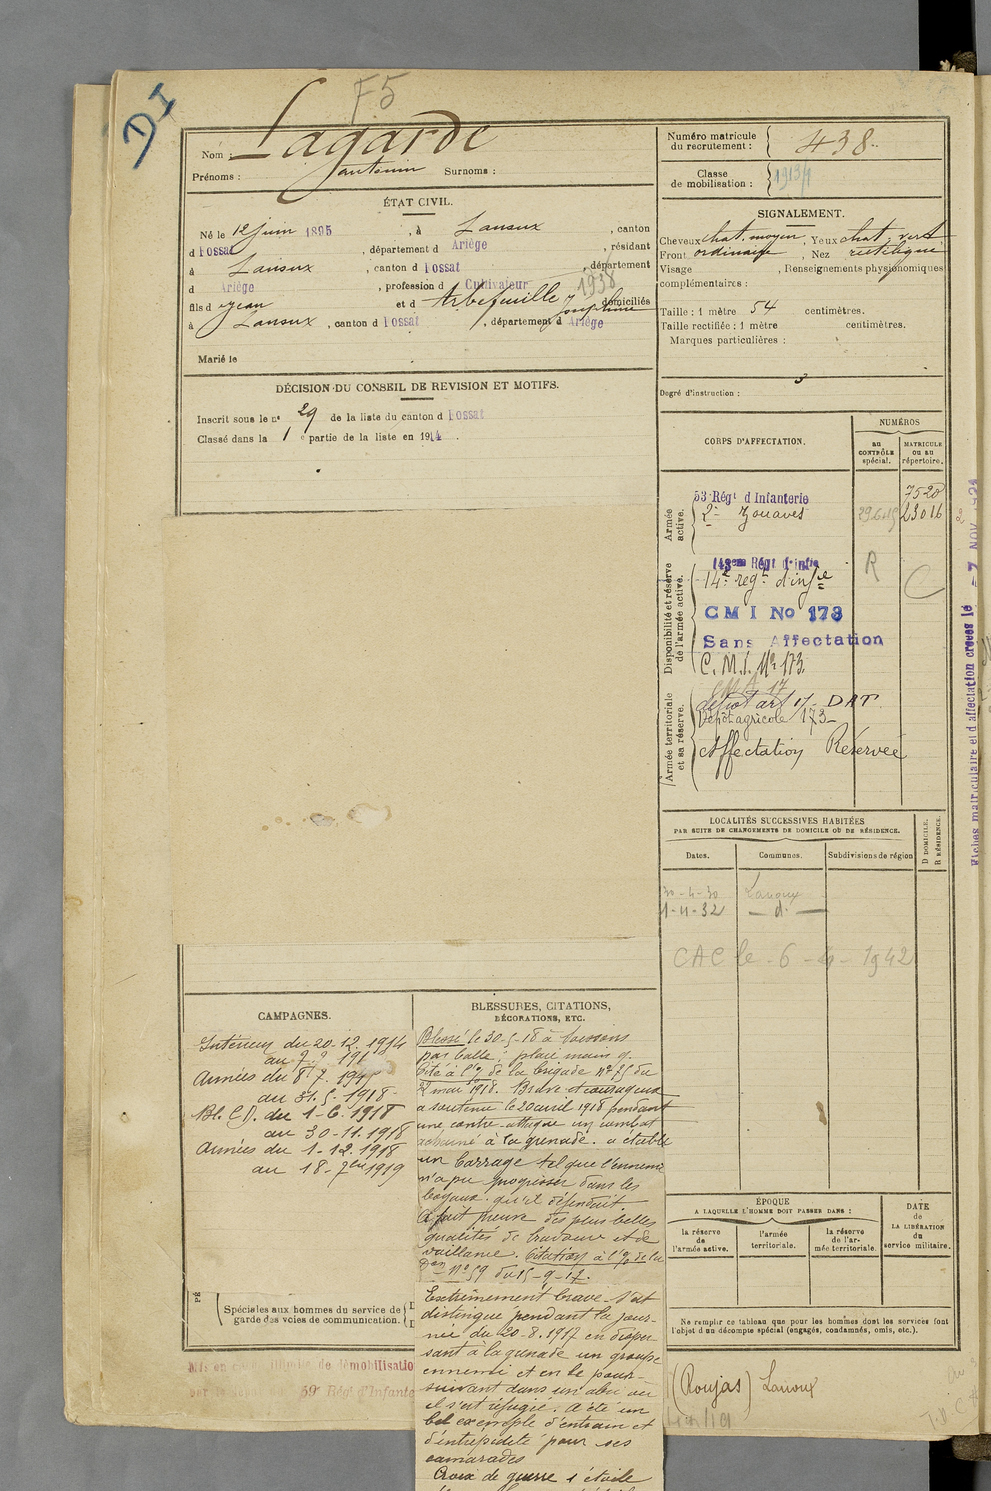 DI
F5
Nom : Lagarde
Prénoms : Antonin Surnoms :
ÉTAT CIVIL.
Né le 12 juin 1895, à Lanoux, canton
d Fossat, département d Ariège, résidant
à Lanoux, canton d Fossat, département
d Ariège, profession d Cultivateur
1938
fils d Jean et d Arbefeuille Joséphine domiciliés
à Lanoux, canton d Fossat, département d Ariège
Marié le
DÉCISION DU CONSEIL DE REVISION ET MOTIFS.
Inscrit sous le n° 29 de la liste du canton d Fossat
Classé dans la 1e partie de la liste en 1914.
Numéro matricule
du recrutement : 438
Classe
de mobilisation :
SIGNALEMENT.
Cheveux chat. moyen, Yeux chat. vert
Front ordinaire, Nez rectiligne
Visage , Renseignements physionomiques
complémentaires :
Taille : 1 mètre 54 centimètres.
Taille rectifiée : 1 mètre centimètres.
Marques particulières :
Degré d'instruction : 3
CORPS D'AFFECTATION.
NUMÉROS
au
CONTRÔLE
spécial.
MATRICULE
ou au
répertoire.
Armée
active.
53e Régt d'Infanterie 7520
2e Zouaves 23016
Disponibilité et réserve
de l'armée active.
143eme Régt d'infie
R
14e régt d'infie
C M I No 173
Sans Affectation
C.M.I. No 173
Armée territoriale
et sa réserve.
dépot art 17 DAT
Dépôt agricole 173
Affectation Réservée
Fiches matriculaire et d'affectation créées le 7 NOV. 1921
LOCALITÉS SUCCESSIVES HABITÉES
PAR SUITE DE CHANGEMENTS DE DOMICILE OU DE RÉSIDENCE.
Dates.
Communes.
Subdivisions de région
D DOMICILE.
R RÉSIDENCE.
30-4-30 Lanoux
1-11-32 — d° —
CAC le 6-4-1942
CAMPAGNES.
Intérieur du 20-12.1914
au 7.
Armées du 8.7.
au 31.5.1918
Bl. C.D. du 1-6.1918
au 30-11.1918
Armées du 1-12.1918
au 18-7bre 1919
Spéciales aux hommes du service de
garde des voies de communication.
BLESSURES, CITATIONS,
DÉCORATIONS, ETC.
Blessé le 30-5-18 à Soissons
par balle; plaie main g.
Cité à l'o/ de la brigade n° 55 du
2 mai 1918. Brave et courageux
a soutenu le 20 avril 1918 pendant
une contre-attaque un combat
acharné à la grenade. a établi
un barrage tel que l'ennemi
n'a pu progresser dans les
boyaux qu'il défendait.
A fait preuve des plus belles
qualités de bravoure et de
vaillance. Citation à l'o/ de la
Don N° 59 du 15-9-17.
Extrêmement brave s'est
distingué pendant la jour-
née du 20-8.1917 en disper-
sant à la grenade un groupe
ennemi et en le pour-
suivant dans un abri où
il s'est réfugié. A été un
bel exemple d'entrain et
d'intrépidité pour ses
camarades
Croix de guerre 1 étoile
ÉPOQUE
A LAQUELLE L'HOMME DOIT PASSER DANS :
la réserve
de
l'armée active.
l'armée
territoriale.
la réserve
de l'ar-
mée territoriale.
DATE
de
LA LIBÉRATION
du
service militaire.
Ne remplir ce tableau que pour les hommes dont les services font
l'objet d'un décompte spécial (engagés, condamnés, omis, etc.).
Mis en congé illimité de démobilisation
par le dépôt du 59e Régt d'Infante
(Roujas) Lanoux